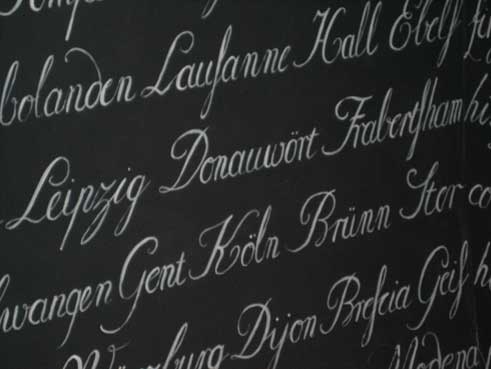 bolanden Lauſanne Hall Ebelſ
Leipzig Donauwört Frabertſham hi
wangen Gent Köln Brünn Stor co
Würzburg Dijon Breſcia Geiſ
Modena